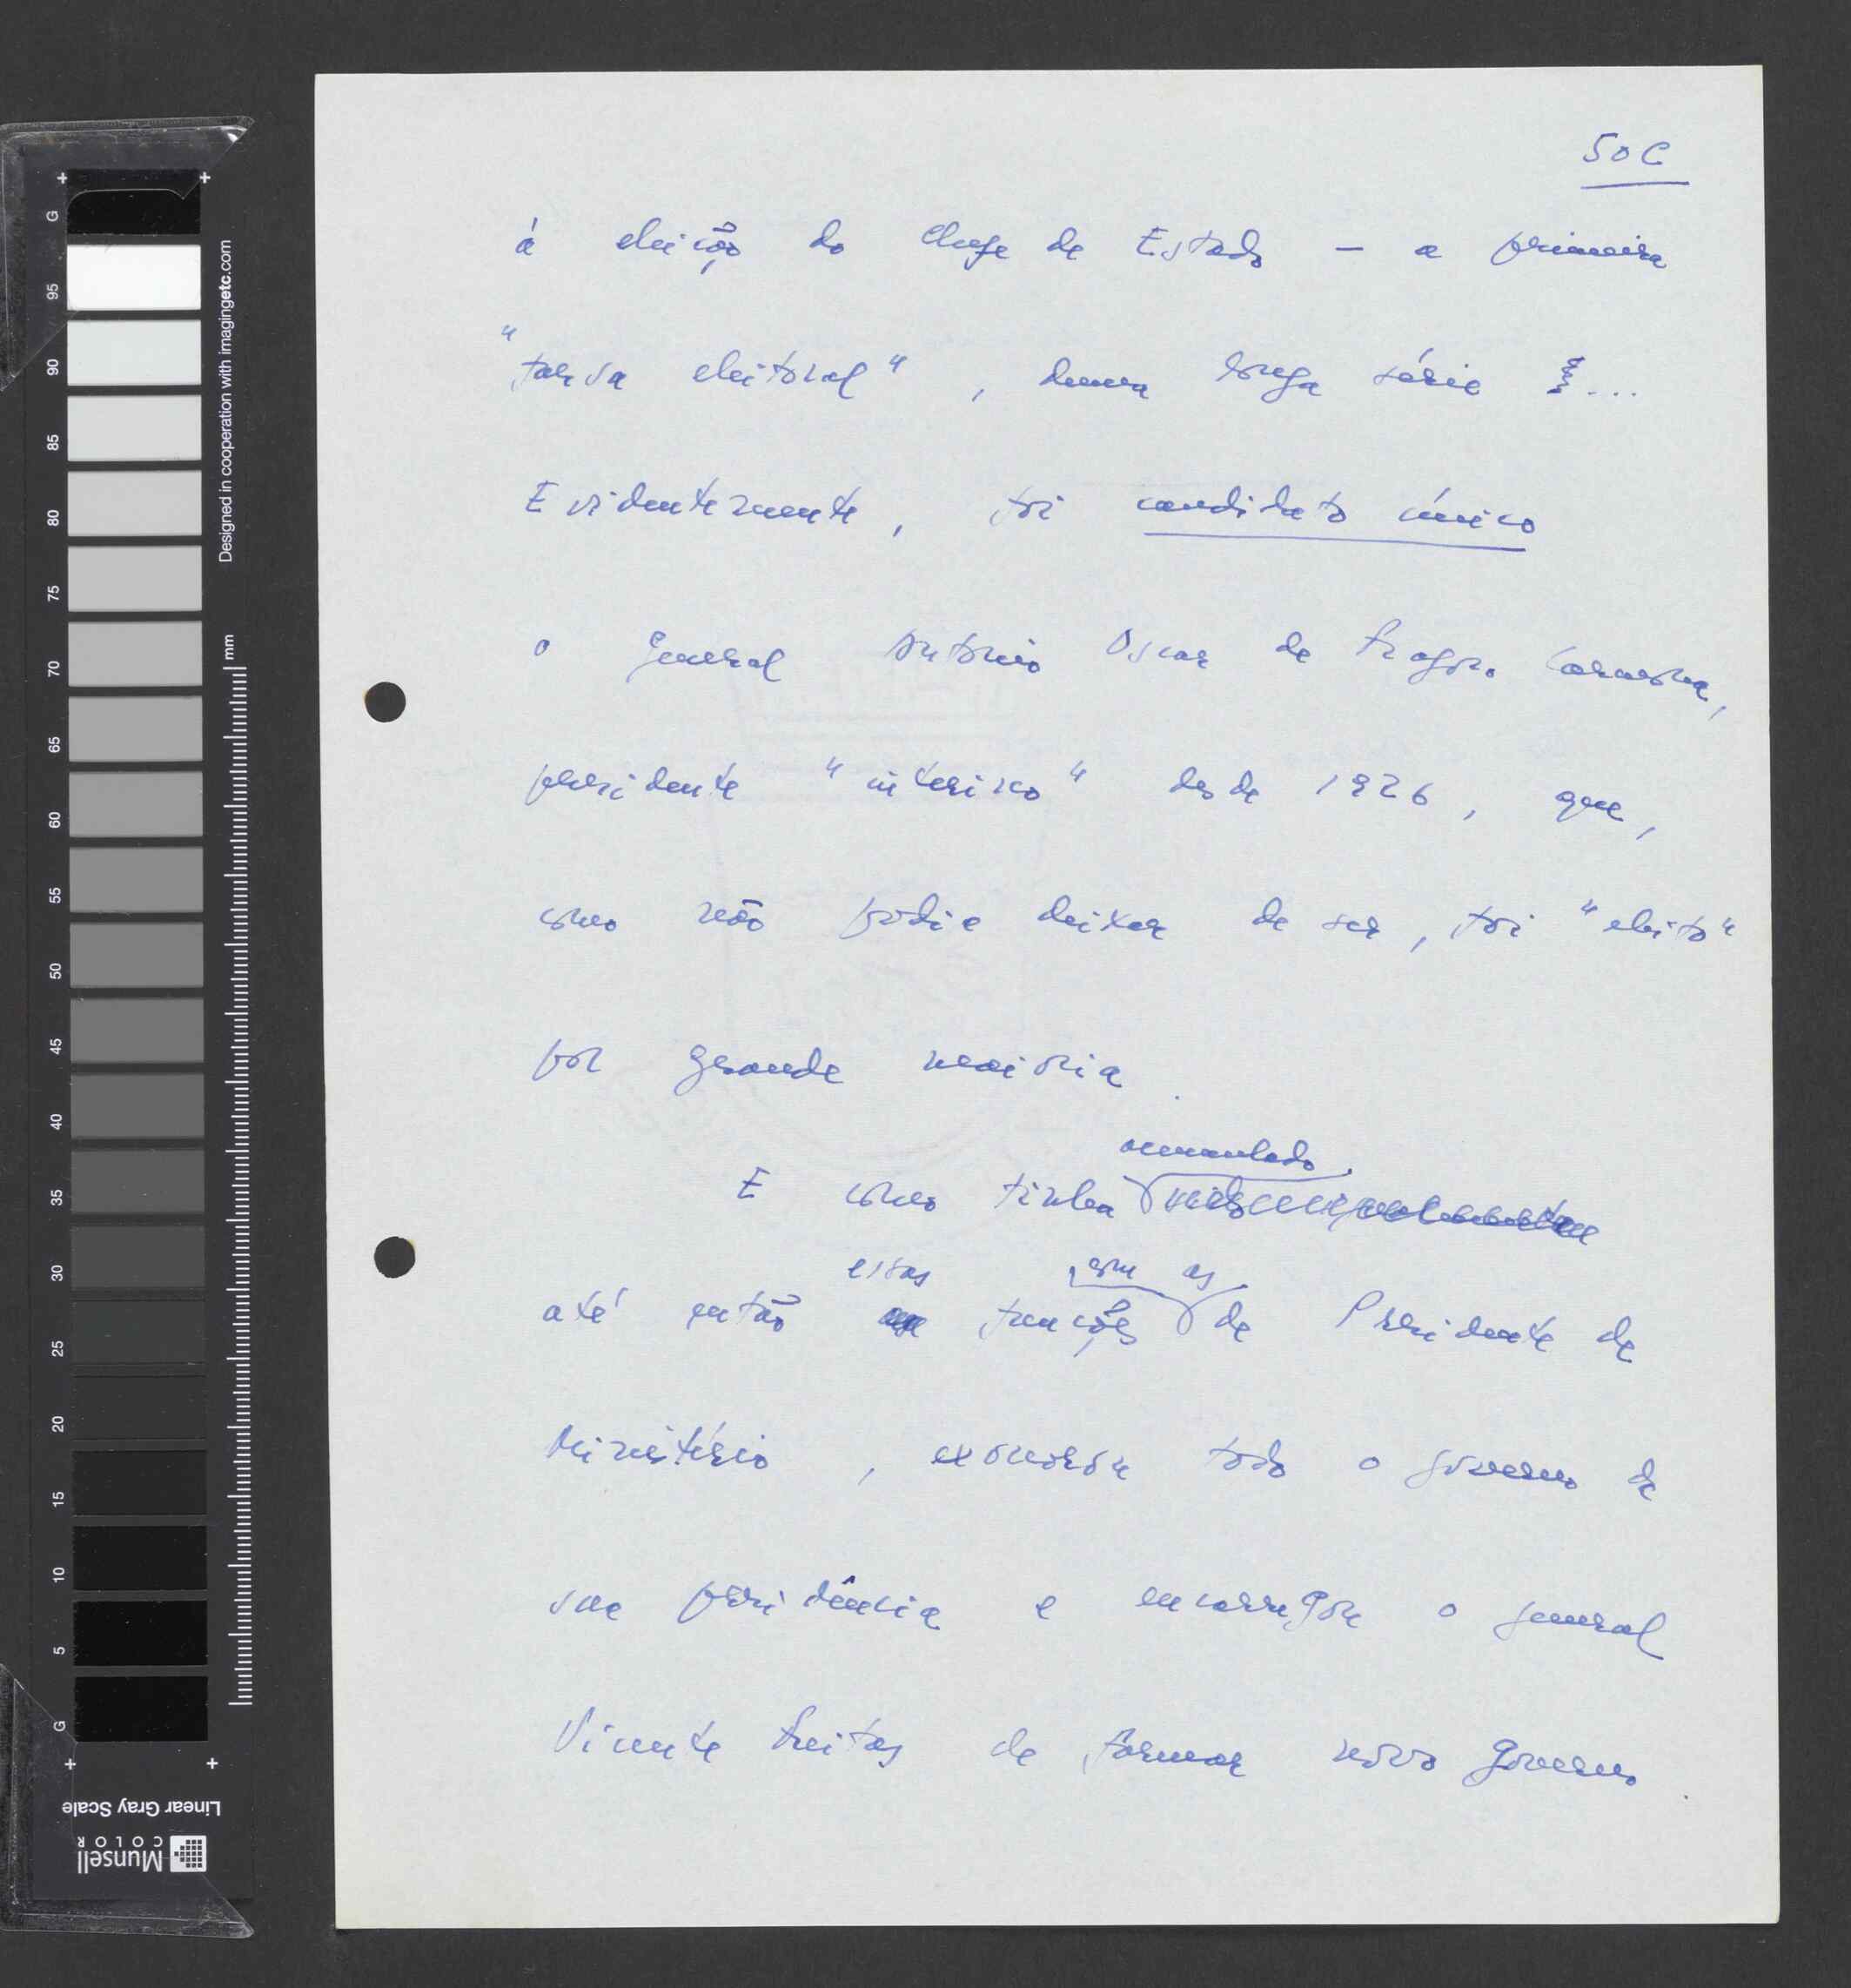 50C
à eleição do Chefe de Estado – a primeira
"farsa eleitoral", duma longa série ...
Evidentemente, foi candidato único
o General António Oscar de Fragoso Carmona,
presidente "interino" desde 1926, que,
como não podia deixar de ser, foi "eleito"
por grande maioria.
acumulado
E como tinha
essas com as
até então funções de Presidente de
Ministério, exonerou todo o governo de
sua presidência e encarregou o general
Vicente Freitas de formar novo Governo.
G
95
90
85
80
75
70
65
60
55
50
45
40
35
30
25
20
15
10
5
G
mm
Designed in cooperation with imagingetc.com
Linear Gray Scale
Munsell
COLOR